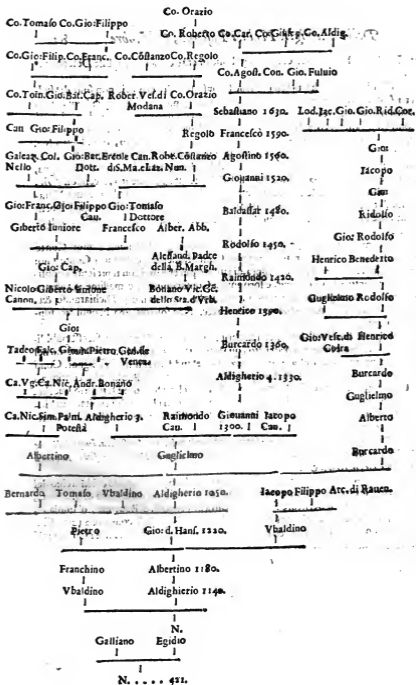 Co. Orazio
Co.Tomaso Co.Gio:Filippo Co. Roberto Co.Car. Co.Giuſep. Co. Aldig.
Co.Gio:Filip. Co.Franc. Co.Coſtanzo Co.Regolo
Co.Agoſt. Con. Gio. Fuluio
Co.Toin. Gio.Bat. Cap. Rober. Veſ.di Co.Orazio
Modana Sebaſtiano 1630. Lod. Iac. Gio. Gio. Rid. Cor.
Can. Gio:Filippo Regolo Franceſco 1590. Gio:
Galeaz. Col. Gio:Bat. Ercole Can. Robe. Coſtanzo Agoſtino 1560. Iacopo
Nello Dott. di S.Ma.e Laz. Nun. Giouanni 1520. Gio:
Gio:Franc. Gio:Filippo Gio:Tomaſo
Cau. Dottore
Giberto Iuniore Franceſco Alber. Abb. Baldaſſar 1480. Ridolfo
Rodolfo 1450. Gio: Rodolfo
Gio: Cap. Aleſſand. Padre
della B.Margh. Raimondo 1420. Henrico Benedetto
Nicolo Giberto Simone Bonano Vic.Ge.
Canon. dello Sta. d'Vrb. Henrico 1390. Guglielmo Rodolfo
Gio: Burcardo 1360. Gio:Veſc.di Henrico
Coira
Tadeo Pietro
Venez.
Aldigherio 4. 1330. Burcardo
Ca.Vg. Ca.Nic. Andr. Bonano Guglielmo
Ca.Nic. Sim. Pa'ni. Aldigherio 3. Raimondo Giouanni Iacopo Alberto
Poteſtà Cau. 1300. Cau.
Albertino Guglielmo Burcardo
Bernardo Tomaſo Vbaldino Aldigherio 1250. Iacopo Filippo Arc. di Rauen.
Pietro Gio: d. Hanſ. 1220. Vbaldino
Franchino Albertino 1180.
Vbaldino Aldighierio 1140.
N.
Galliano Egidio
N. . . . . 421.